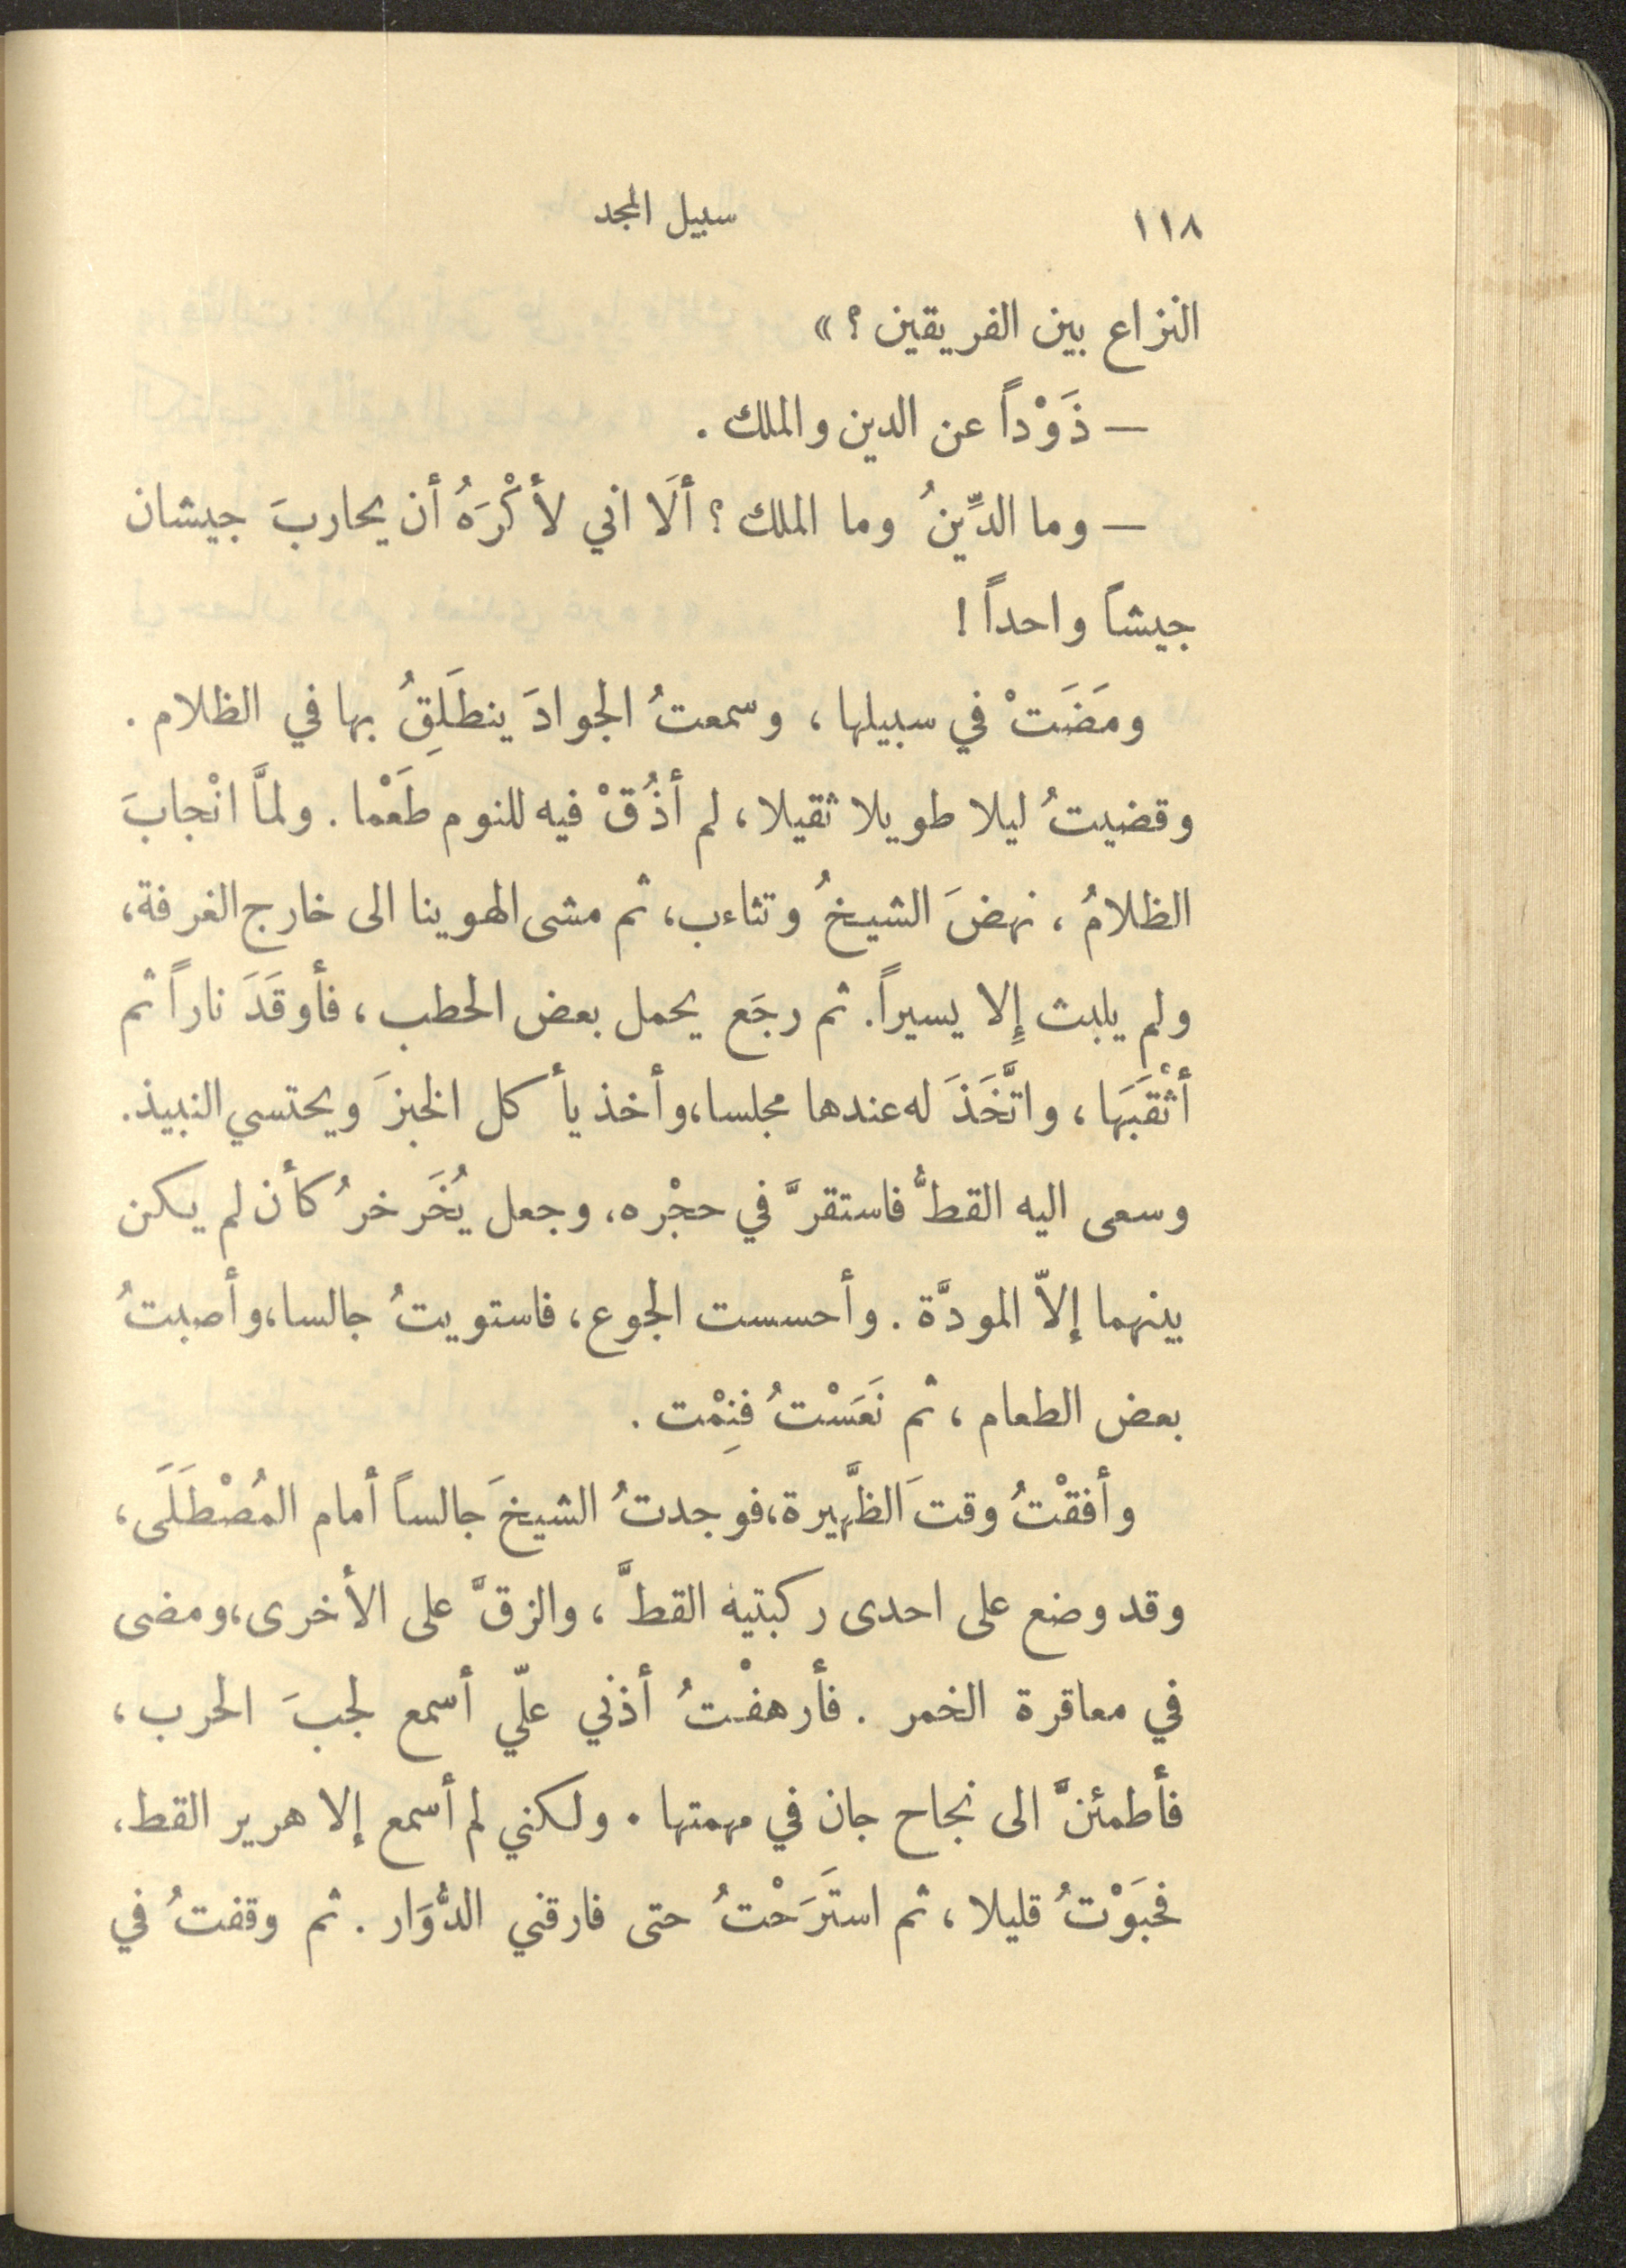 ١١٨
سبيل المجد
النزاع بين الفريقين ؟ »
— ذَوْداً عن الدين والملك .
— وما الدِّينُ وما الملك ؟ ألَا اني لأكْرَهُ أن يحاربَ جيشان
جيشاً واحداً !
ومَضَتْ في سبيلها ، وسمعتُ الجوادَ ينطَلِقُ بها في الظلام .
وقضيتُ ليلا طويلا ثقيلا ، لم أذُقْ فيه للنوم طَعْما . ولمَّا انْجابَ
الظلامُ ، نهضَ الشيخُ وتثاءب ، ثم مشى الهوينا الى خارج الغرفة ،
ولم يلبث إِلا يسيراً . ثم رجَع يحمل بعض الحطب ، فأوقَدَ ناراً ثم
أثْقَبَها ، واتَّخَذَ له عندها مجلسا ، وأخذ يأكل الخبزَ ويحتسي النبيذ .
وسعى اليه القطُّ فاستقرَّ في حجْره ، وجعل يُخَرخرُ كأن لم يكن
بينهما إلاّ المودَّة . وأحسست الجوع ، فاستويتُ جالسا ، وأصبتُ
بعض الطعام ، ثم نَعَسْتُ فنِمْت .
وأفقْتُ وقتَ الظَّهيرة ، فوجدتُ الشيخَ جالساً أمام المُصْطَلَى ،
وقد وضع على احدى ركبتيه القطَّ ، والزقَّ على الأخرى ، ومضى
في معاقرة الخمر . فأرهفْتُ أذني علّي أسمع لجبَ الحرب ،
فأطمئنَّ الى نجاح جان في مهمتها . ولكني لم أسمع إلا هرير القط ،
فحبَوْتُ قليلا ، ثم استَرَحْتُ حتى فارقني الدُّوَار . ثم وقفتُ في